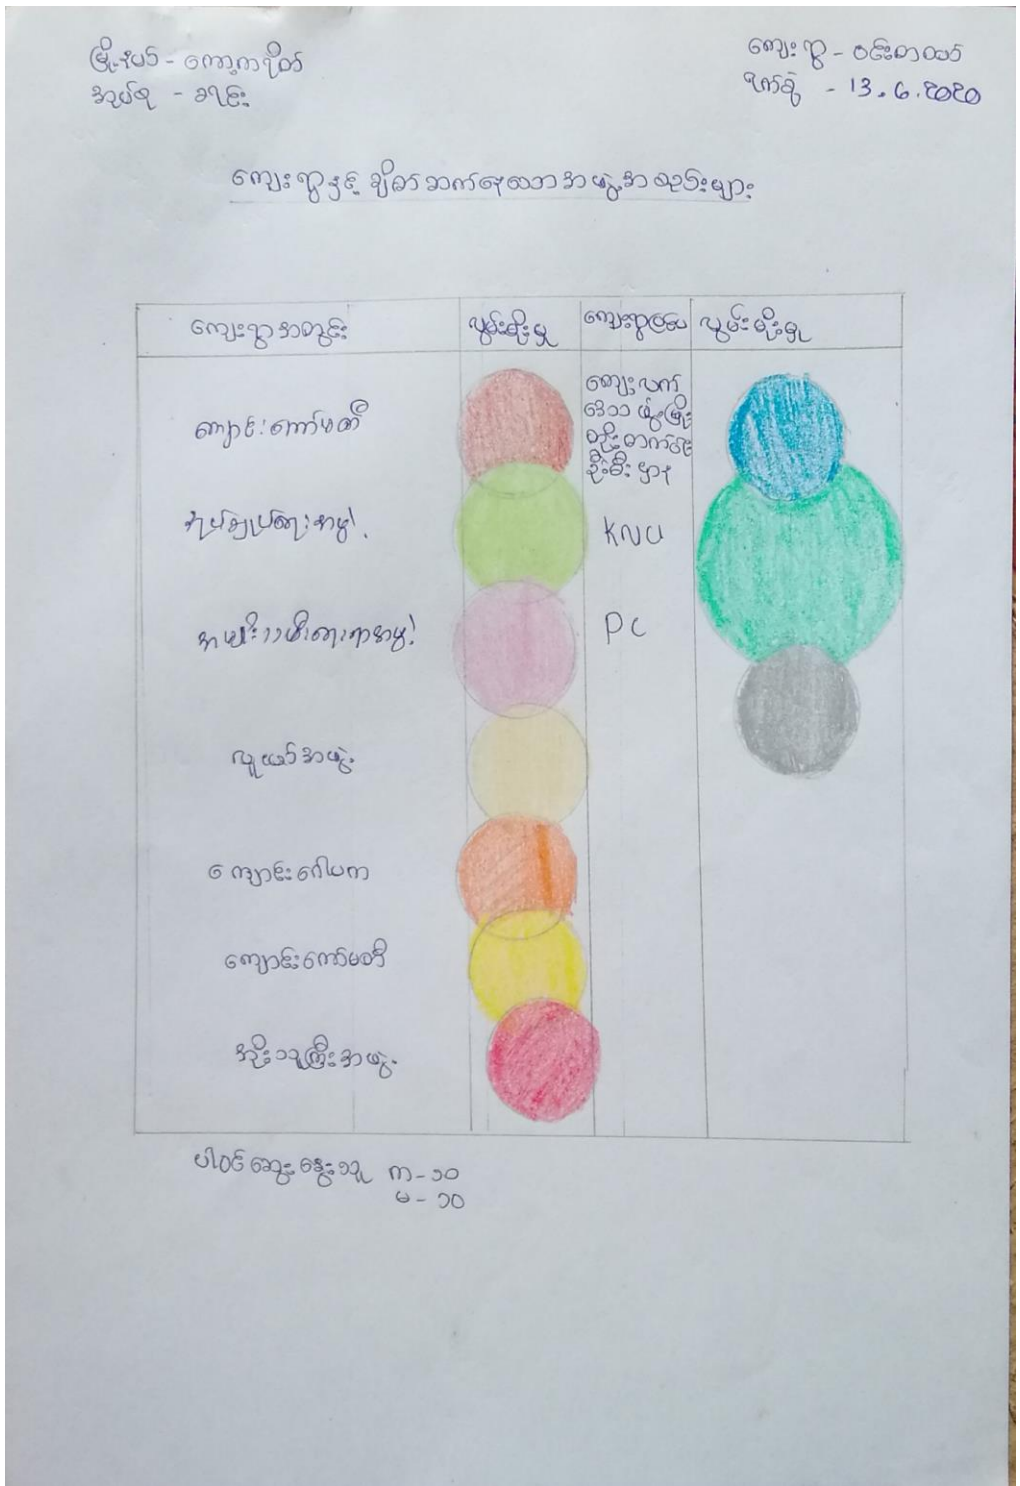 မြို့နယ် - ကော့ကရိတ်
အုပ်စု - ခရင်း
ကျေးရွာ -
ရက်စွဲ - 13.6.2020
ကျေးရွာနှင့် ချိတ်ဆက်နေသောအဖွဲ့အစည်းများ
ကျေးရွာအတွင်း
လွှမ်းမိုးမှု
ကျေးရွာပြင်ပ
လွှမ်းမိုးမှု
ကျောင်းကော်မတီ
ကျေးလက်
ဒေသ ဖွံ့ဖြိုး
တိုးတက်ရေး
ဦးစီးဌာန
အုပ်ချုပ်ရေးအဖွဲ့
KNU
အမျိုးသမီးရေးရာအဖွဲ့
PC
လူငယ်အဖွဲ့
ကျောင်းဂေါပက
ကျောင်းကော်မတီ
အိုးသူကြီးအဖွဲ့
ပါဝင်ဆွေးနွေးသူ ကျ - ၁၀
မ - ၁၀